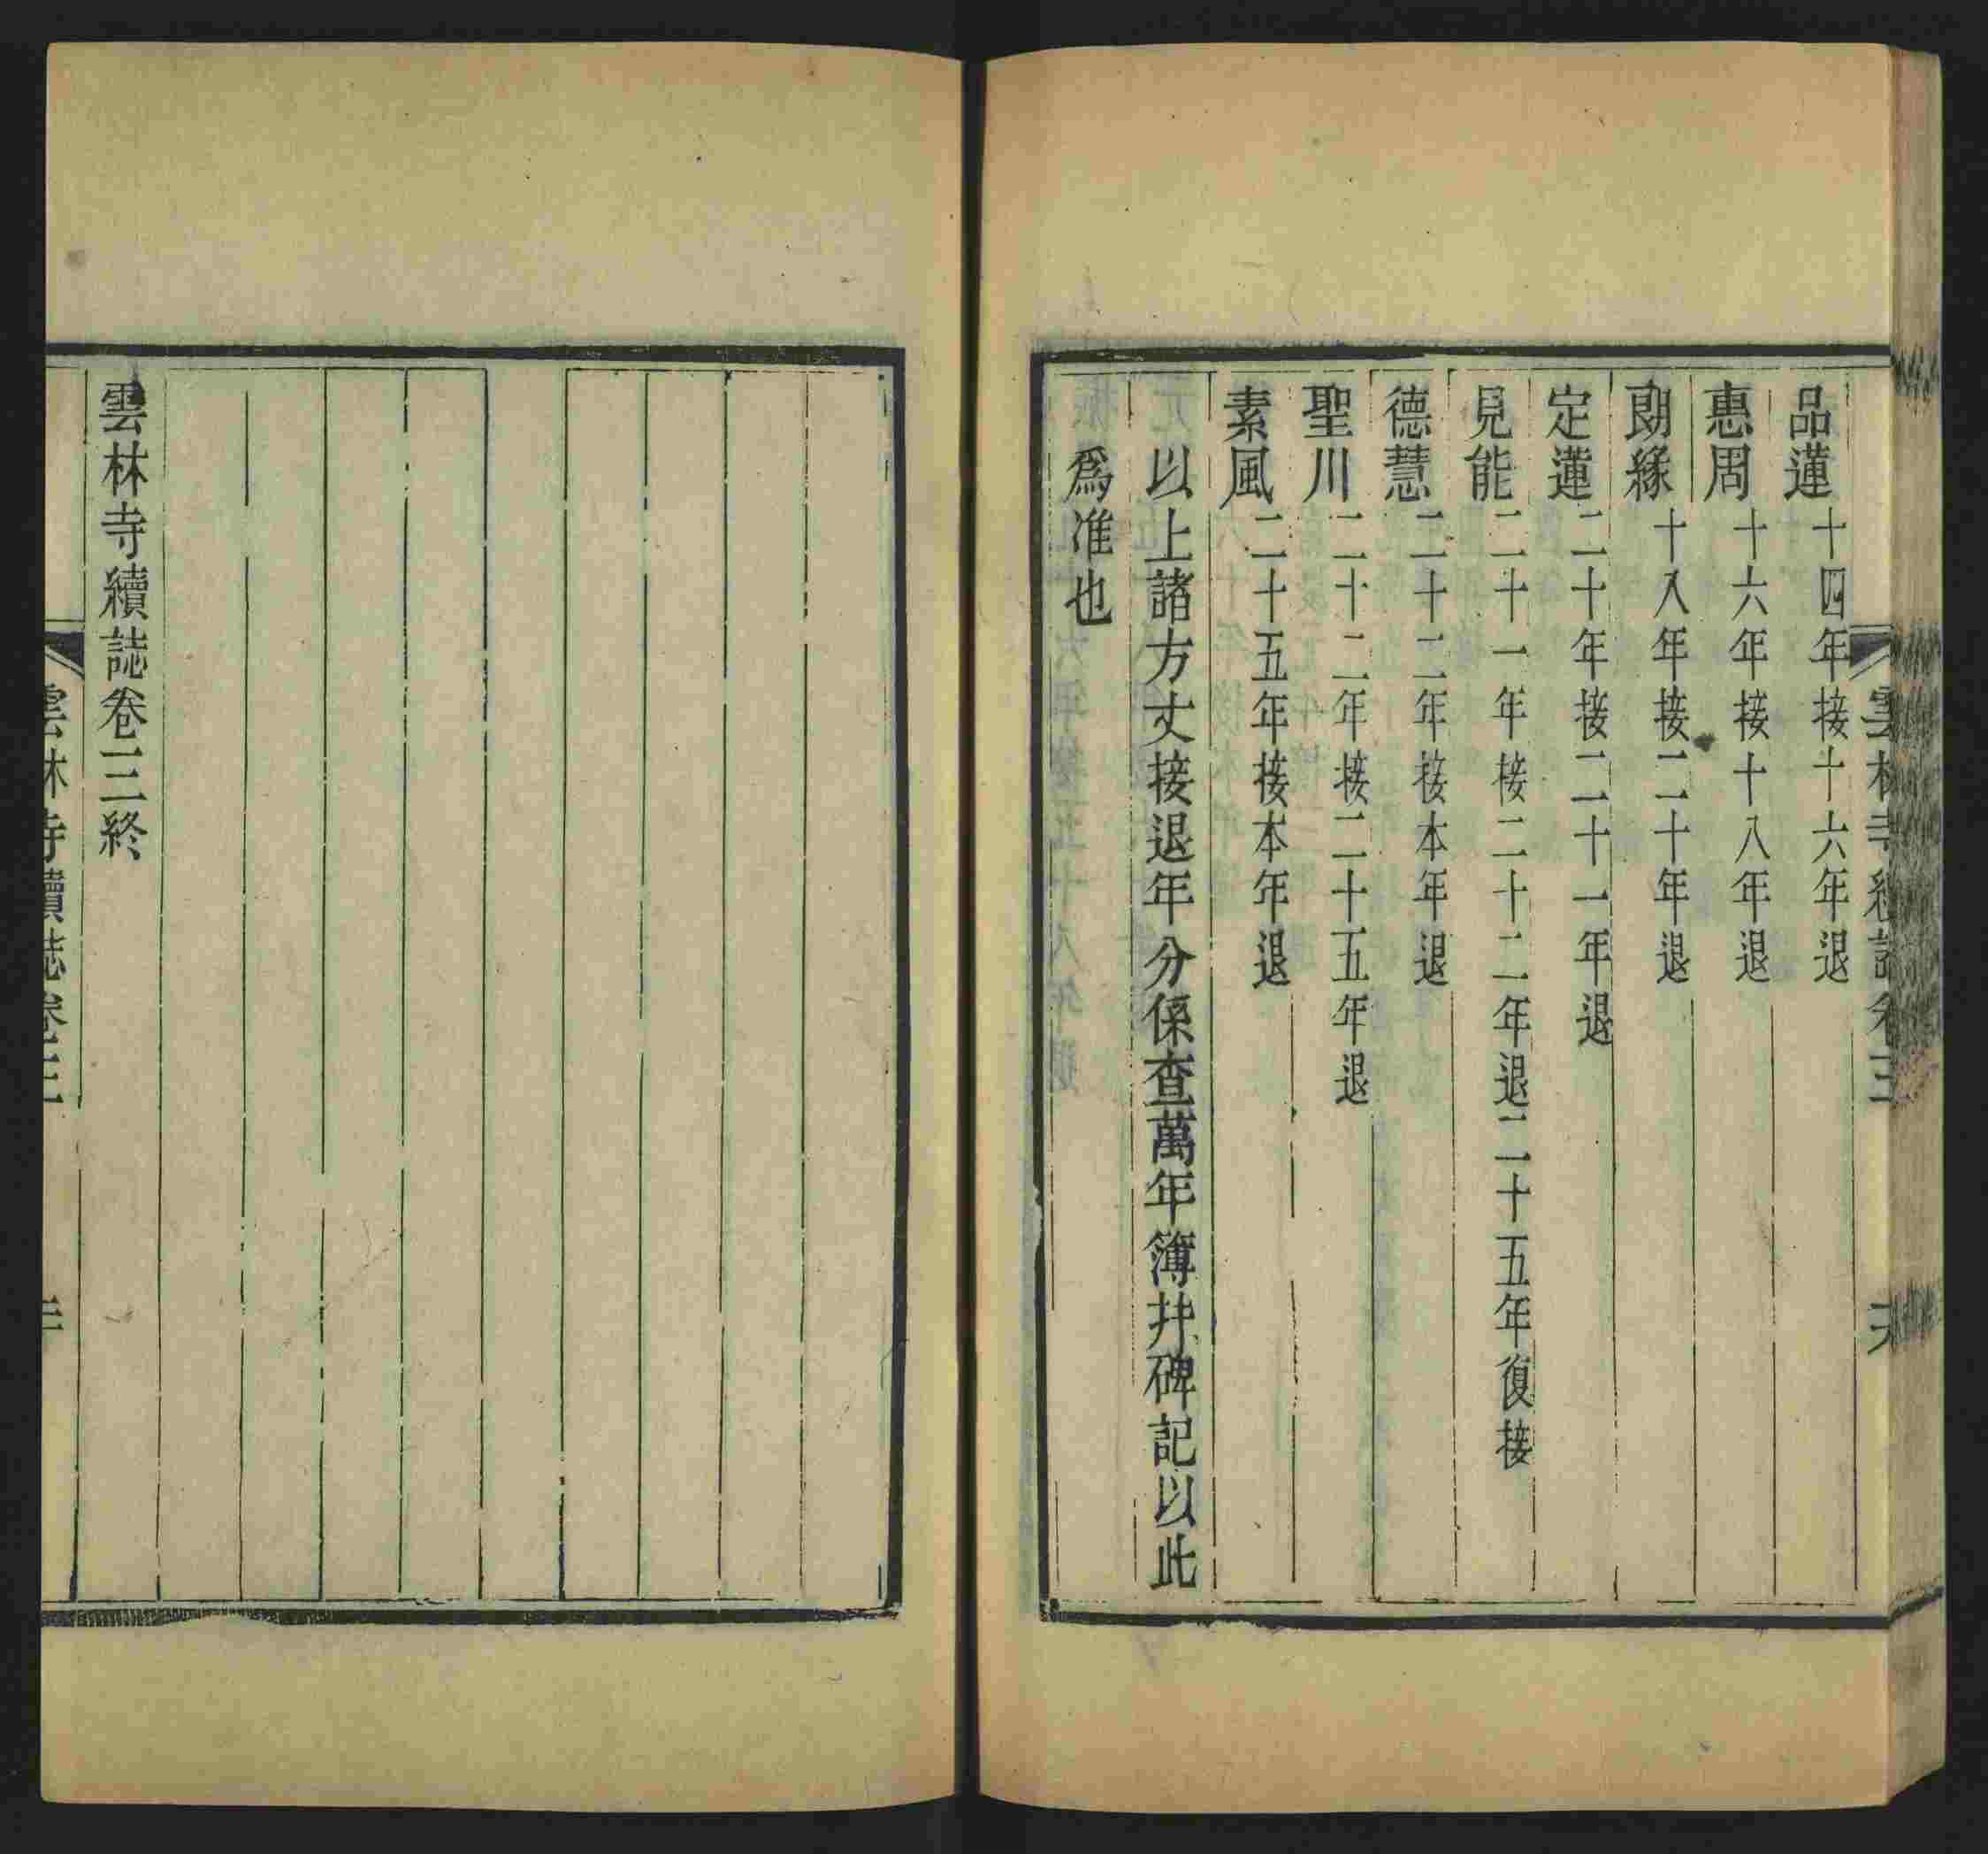 品蓮 十四年接十六年退
惠周 十六年接十八年退
朗緣 十八年接二十年退
定蓮 二十年接二十一年退
見能 二十一年接二十二年退二十五年復接
德慧 二十二年接本年退
聖川 二十二年接二十五年退
素風 二十五年接本年退
以上諸方丈接退年分係查萬年簿幷碑記以此
爲准也
雲林寺續誌卷三終
雲林寺續誌卷三